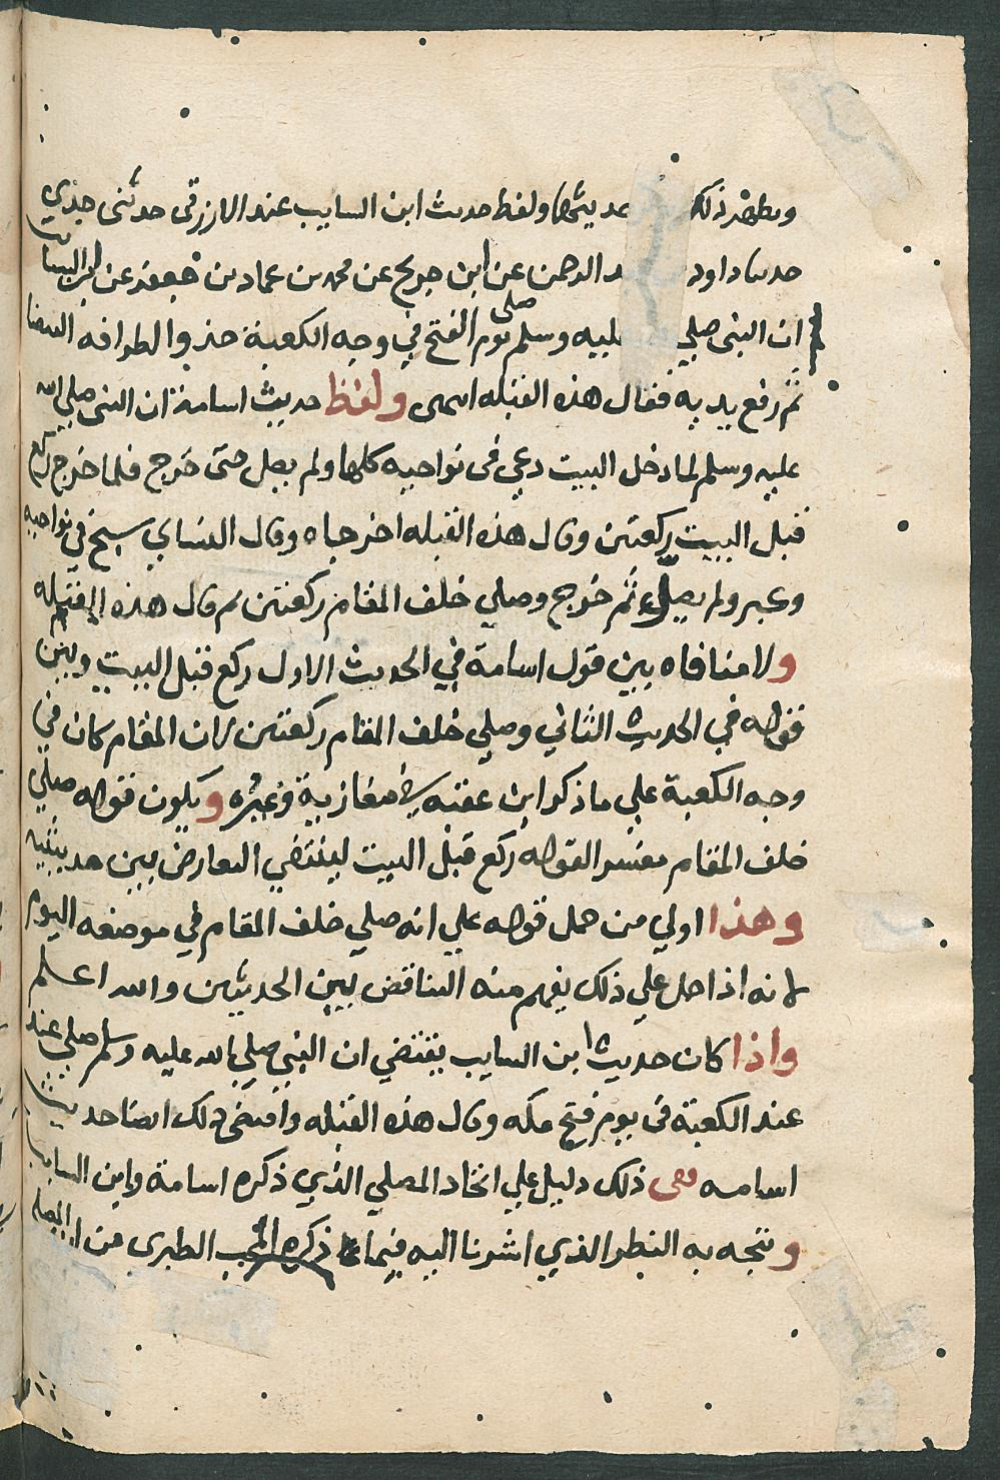 ويظهر ذلك حديثها ولفظ حديث ابن السايب عند الازرقي حدثني جدي
حدثنا داود الرحمن عن ابن جريج عن محمد بن عباد بن جعفر عن ابن السايب
ان النبي صلي عليه وسلم صلى يوم الفتح في وجه الكعبة حذو الطرافه البيضا
ثم رفع يديه فقال هذه القبله انتهى ولفظ حديث اسامة ان النبي صلي الله
عليه وسلم لما دخل البيت دعي في نواحيه كلها ولم يصل حتى خرج فلما خرج ركع
قبل البيت ركعتين وقال هذه القبله اخرجاه وقال النساي سبح في نواحيه
وكبر ولم يصلي ثم خرج وصلي خلف المقام ركعتين ثم قال هذه القبله
ولا منافاه بين قول اسامة في الحديث الاول ركع قبل البيت وبين
قوله في الحديث الثاني وصلي خلف المقام ركعتين لان المقام كان في
وجه الكعبة علي ما ذكر ابن عقبه في مغازيه وغيره ويكون قوله صلي
خلف المقام مفسرا لقوله ركع قبل البيت لينتفي التعارض بين حديثيه
وهذا اولي من حمل قوله علي انه صلي خلف المقام في موضعه اليوم
لانه اذا حمل علي ذلك يفهم منه التناقض بين الحديثين والله اعلم
واذا كان حديث ابن السايب يقتضي ان النبي صلي الله عليه وسلم صلي عند
عند الكعبة في يوم فتح مكه وقال هذه القبله واقتضي ذلك ايضا حديث
اسامه ففي ذلك دليل علي اتحاد المصلي الذي ذكره اسامة وابن السايب
ويتجه به النظر الذي اشرنا اليه فيما ذكره المحب الطبري من ان المصلي